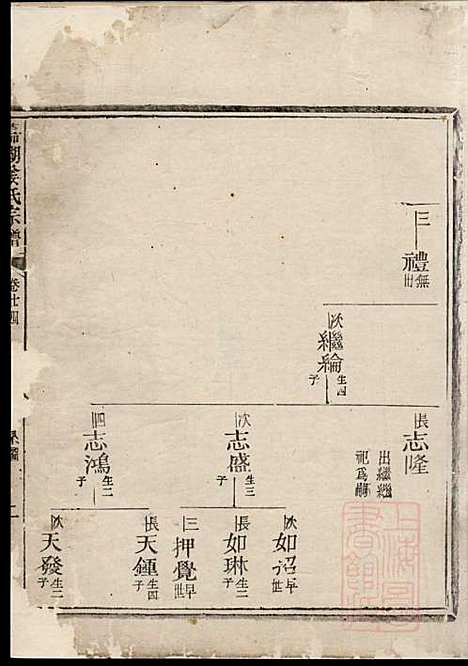 三
禮
無出
次
繼綸
生四子
長
志隆
出繼繼
祀爲嗣
次
志盛
生三子
四
志鴻
生二子
次
如詔
早世
長
如琳
生二子
三
押覺
早世
長
天鍾
生四子
次
天發
生二子
湖姜氏宗譜
卷廿四
上海
書館